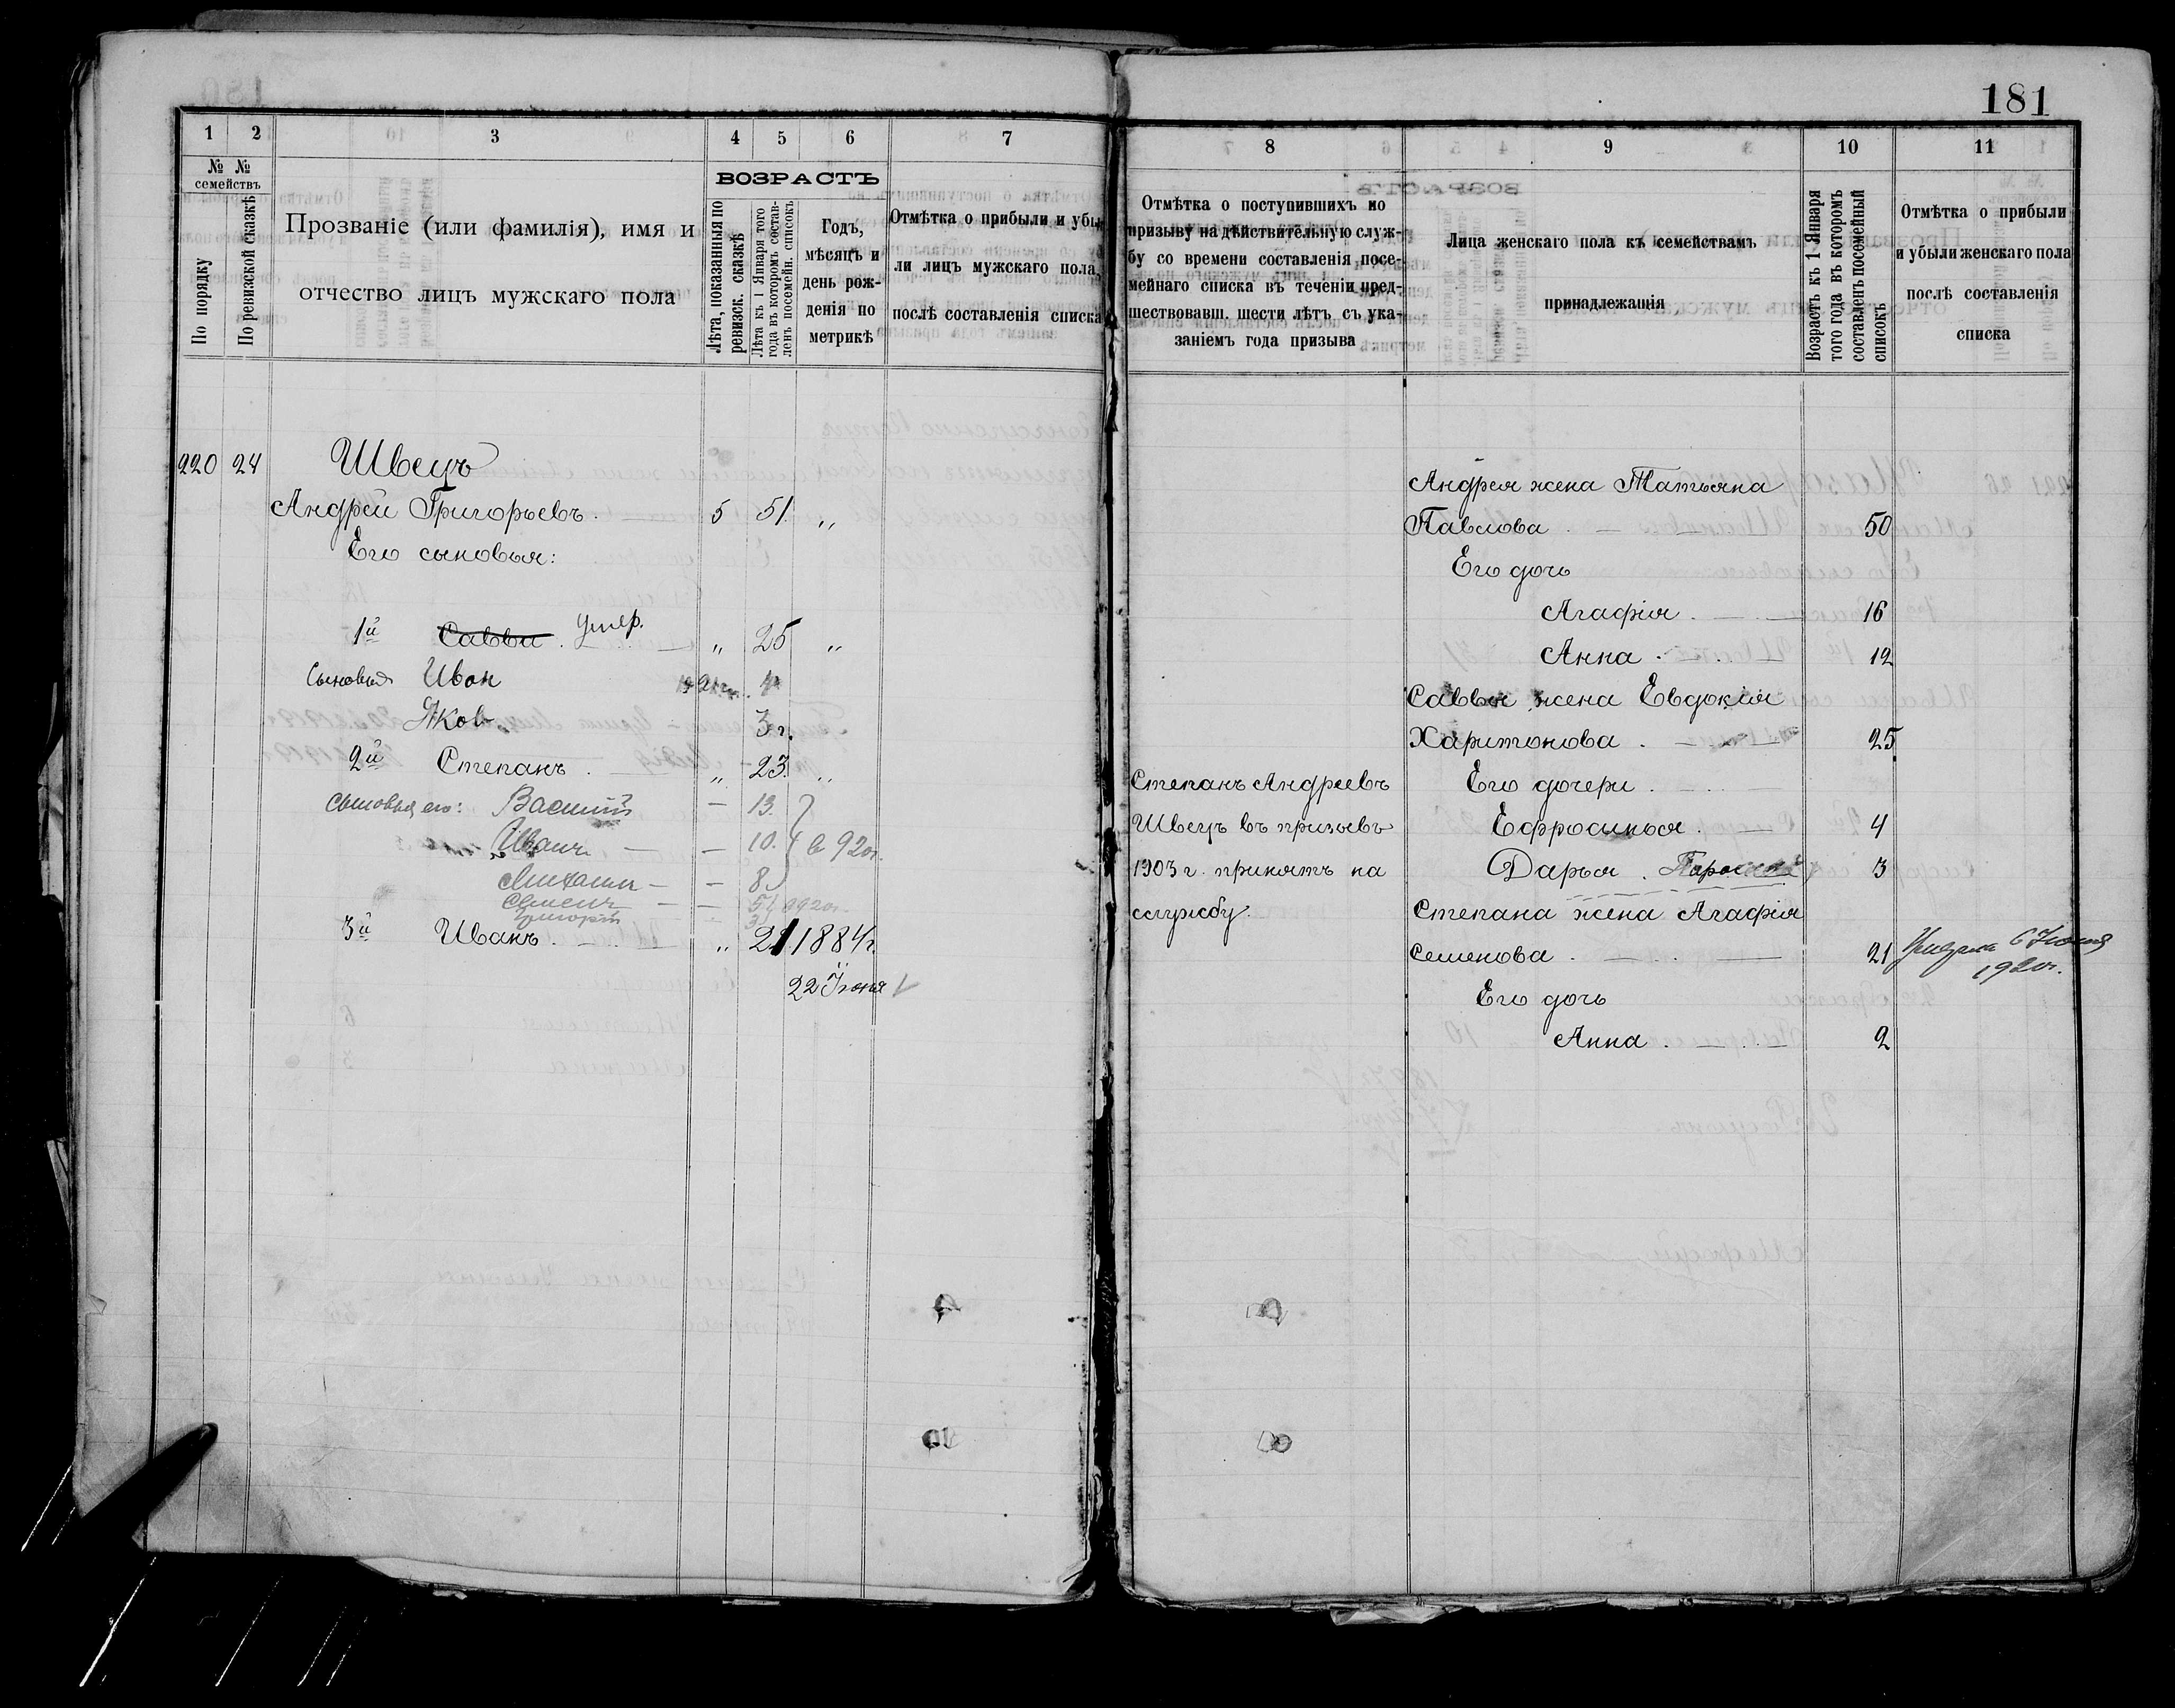 181
1 2 3 4 5 6 7
№ № семействъ
По порядку
По ревизской сказкѣ
Прозваніе (или фамилія), имя и
отчество лицъ мужскаго пола
ВОЗРАСТЪ
Лѣта, показанныя по
ревизск. сказкѣ
Лѣта къ 1 Января того
года въ которомъ состав-
ленъ посемейн. списокъ
Годъ,
мѣсяцъ и
день рож-
денія по
метрикѣ
Отмѣтка о прибыли и убы-
ли лицъ мужскаго пола,
послѣ составленія списка
220 24 Швецъ
Андрей Григорьевъ. 5 51. „
Его сыновья:
1й Савва. умер. „ 25 „
Сыновья Иван 4
Яков 3 г.
2й Степанъ. „ 23. „
Сыновья его: Василий — 13.
Иванъ — — 10. в 920г.
Михаилъ — — 8
Семенъ — — 5 в 920г.
Григорій 3
3й Иванъ. „ 21 1884 г.
22 Іюня
8 9 10 11
Отмѣтка о поступившихъ по
призыву на дѣйствительную служ-
бу со времени составленія посе-
мейнаго списка въ теченіи пред-
шествовавш. шести лѣтъ съ ука-
заніемъ года призыва
Лица женскаго пола къ семействамъ
принадлежащія
Возрастъ къ 1 Января
того года въ которомъ
составленъ посемейный
списокъ
Отмѣтка о прибыли
и убыли женскаго пола
послѣ составленія
списка
Андрея жена Татьяна
Павлова 50
Его дочь
Агафія 16
Анна 12
Саввы жена Евдокія
Харитонова 25
Его дочери
Ефросинья 4
Дарья 3
Степана жена Агафія
Семенова 21 Умерла 6 Июня
1920г.
Его дочь
Анна 2
Степанъ Андреевъ
Швецъ въ призывъ
1903 г. принятъ на
службу.